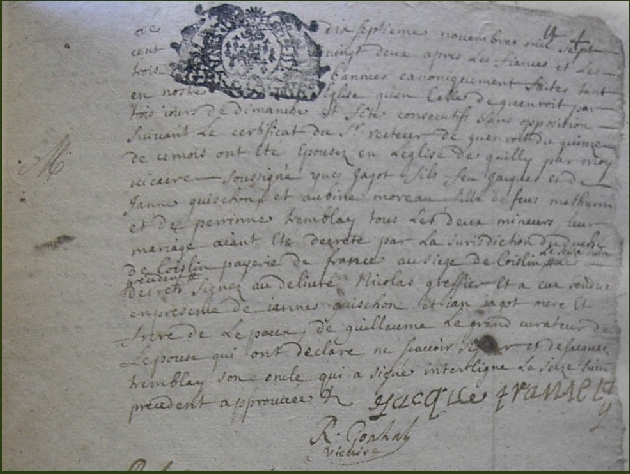 dix septieme novembre mil sept
cent vingt deux apres les fiances et les
trois bannies canoniquement faites tant
en nostre eglise qu'en celle de quenroit par
trois jours de dimanche et fete consecutifs sans opposition
suivant le certificat du Sr recteur de quenroit du quinze
de ce mois ont ete epousez en leglise de quilly par moy
vicaire soussigné yves jagot fils feu jacque et de
janne quischon et aubine moreau fille de feus mathurin
et de perrinne tremblay tous les deux mineurs leur
mariage aiant ete decreté par la jurisdiction du duché
de Coislin payerie de france au siege de Coislin le seize juin
precedent
decrets signez au delivré Nicolas greffier et a eux rendus
en presence de jannes quischon et jan jagot mere et
frere de lepoux, de guillaume le grand curateur de
lepouse qui ont declare ne scavoir signer et de jacques
tremblay son oncle qui a signe interligne le seize juin
precedent approuvee
jacque tramel
R.
vicaire